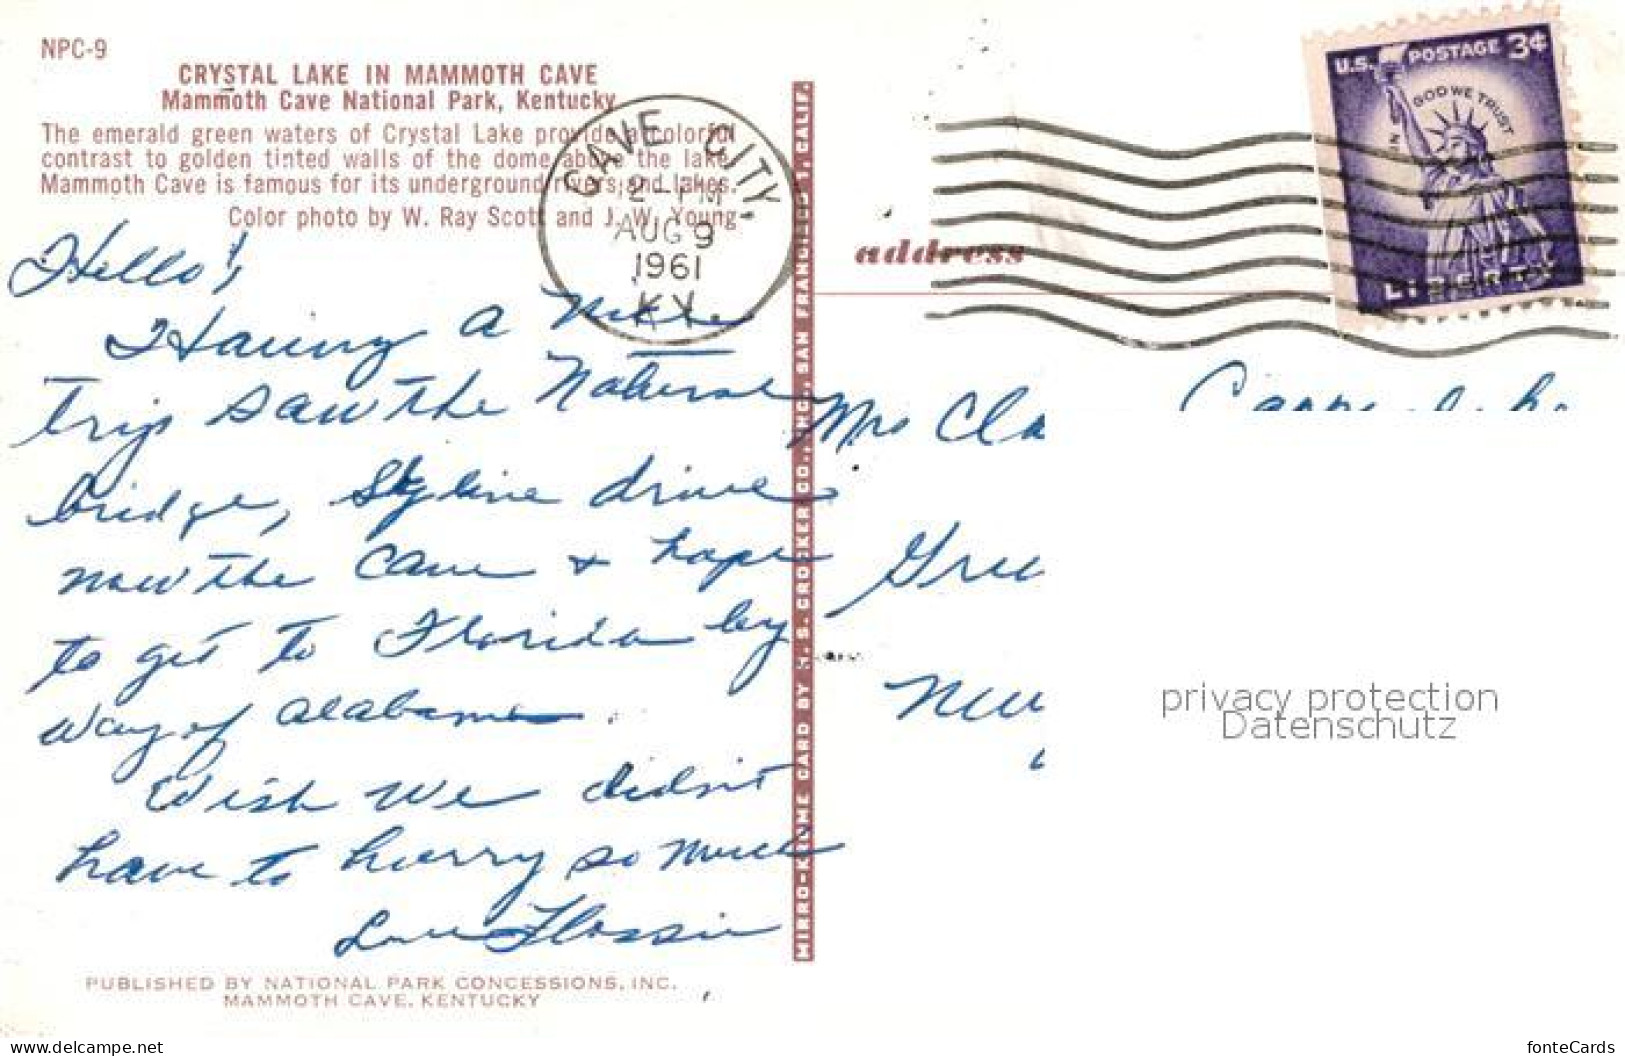 NPC-9
CRYSTAL LAKE IN MAMMOTH CAVE
Mammoth Cave National Park, Kentucky
The emerald green waters of Crystal Lake provide a colorful
contrast to golden tinted walls of the dome above the lake.
Mammoth Cave is famous for its underground rivers and lakes.
Color photo by W. Ray Scott and J. W. Young
CAVE CITY,
2-PM
AUG 9
1961
KY
U.S. POSTAGE 3¢
IN GOD WE TRUST
LIBERTY
address
Hello!
Having a nice
trip saw the Natural
bridge, Skyline drive
now the cave + hope
to get to Florida by
way of Alabama.
Wish we didn't
have to hurry so much
Love Flossie
Mrs Cla
MIRRO-KROME CARD BY H. S. CROCKER CO., INC., SAN FRANCISCO 1, CALIF.
privacy protection
Datenschutz
PUBLISHED BY NATIONAL PARK CONCESSIONS, INC.
MAMMOTH CAVE, KENTUCKY
www.delcampe.net
fonteCards